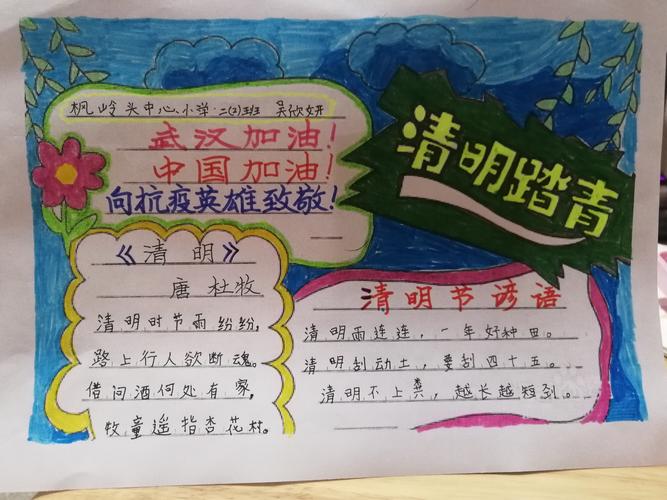 枫岭头中心小学·二(2)班 吴欣妍
武汉加油!
中国加油!
向抗疫英雄致敬!
清明踏青
《清明》
唐 杜牧
清明时节雨纷纷,
路上行人欲断魂。
借问酒何处有家,
牧童遥指杏花村。
清明节谚语
清明雨连连,一年好种田。
清明刮动土,要刮四十五。
清明不上粪,越长越短到。